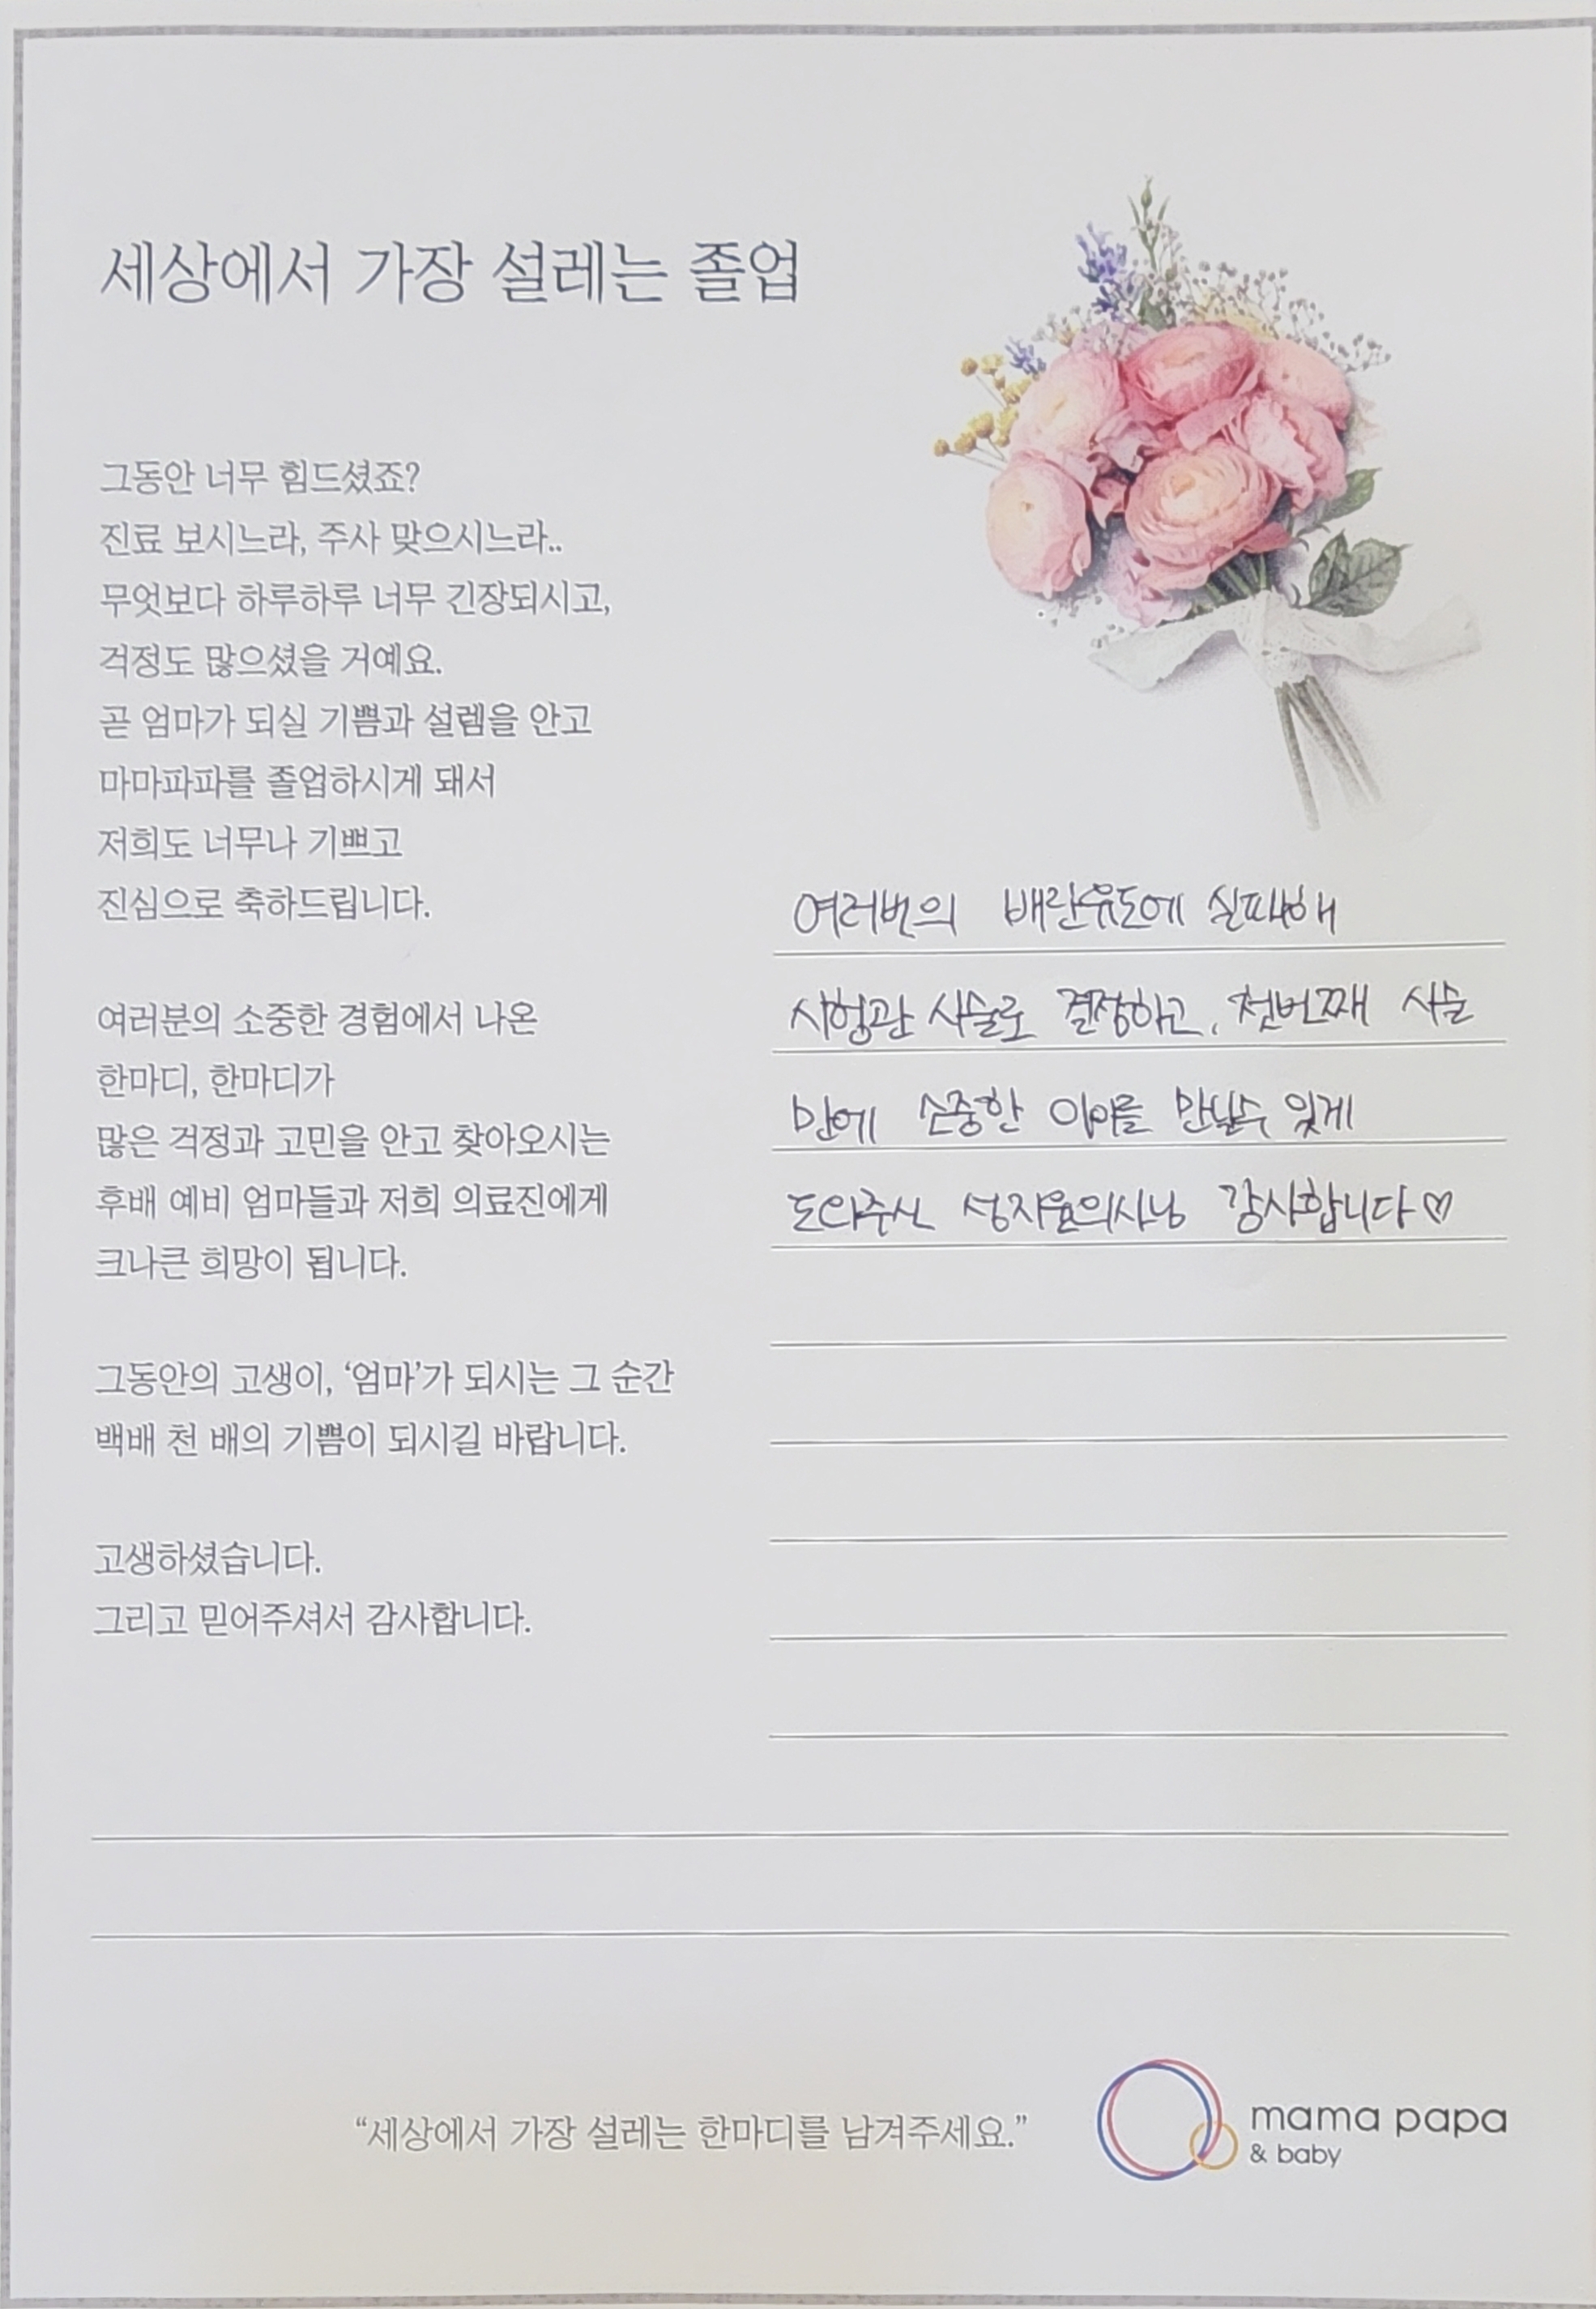 세상에서 가장 설레는 졸업
그동안 너무 힘드셨죠?
진료 보시느라, 주사 맞으시느라..
무엇보다 하루하루 너무 긴장되시고,
걱정도 많으셨을 거예요.
곧 엄마가 되실 기쁨과 설렘을 안고
마마파파를 졸업하시게 돼서
저희도 너무나 기쁘고
진심으로 축하드립니다.
여러분의 소중한 경험에서 나온
한마디, 한마디가
많은 걱정과 고민을 안고 찾아오시는
후배 예비 엄마들과 저희 의료진에게
크나큰 희망이 됩니다.
그동안의 고생이, ‘엄마’가 되시는 그 순간
백배 천 배의 기쁨이 되시길 바랍니다.
고생하셨습니다.
그리고 믿어주셔서 감사합니다.
여러번의 배란유도에 실패해
시험관 시술로 결정하고, 첫번째 시술
만에 소중한 아이를 만날수 있게
도와주신 성지윤의사님 감사합니다♡
“세상에서 가장 설레는 한마디를 남겨주세요.”
mama papa
& baby